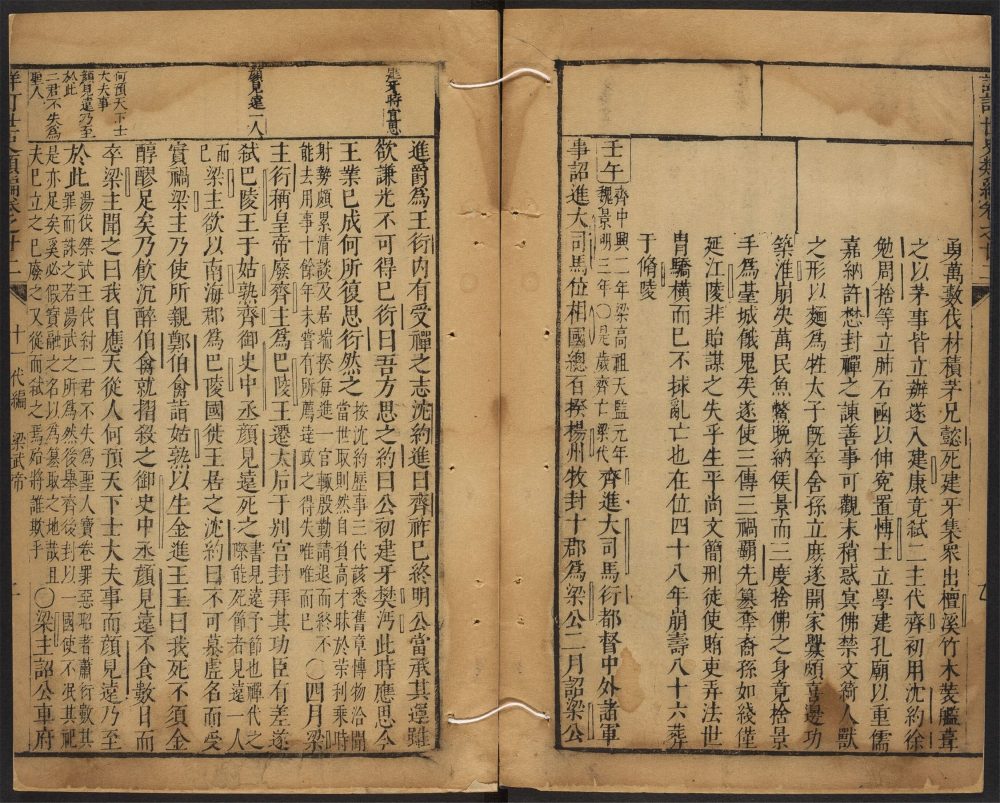 勇萬數伐材積茅兄懿死建牙集眾出檀溪竹木裝艦葺
之以茅事皆立辦遂入建康竟弑二主代齊初用沈約徐
勉周捨等立肺石函以伸寃置博士立學建孔廟以重儒
嘉納許懋封禪之諫善事可觀末稍惑寘佛禁文綺人獸
之形以麵為牲太子旣卒舍孫立庶遂開家釁頗喜邊功
築淮崩失萬民魚鱉晚納侯景而三度捨佛之身竟捨景
手為臺城餓鬼矣遂使三傳三禍覇先簒奪裔孫如綫僅
延江陵非貽謀之失乎生平尚文簡刑徒使賄吏弄法世
胄驕橫而已不捄亂亡也在位四十八年崩壽八十六葬
于脩陵
壬午
齊中興二年梁高祖天監元年
魏景明三年〇是歲齊亡梁代
齊進大司馬衍都督中外諸軍
事詔進大司馬位相國總百揆楊州牧封十郡為梁公二月詔梁公
是牙時宜思
進爵為王衍内有受禪之志沈約進曰齊祚已終明公當承其運雖
欲謙光不可得已衍曰吾方思之約曰公初建牙樊沔此時應思今
王業已成何所復思衍然之
按沈約歷事三代該悉舊章博物洽聞
當世取則然自負高才昧於榮利乘時
射勢頗累清談及居端揆每進一官輒殷勤請退而終不
能去用事十餘年未嘗有所薦達政之得失唯唯而已
〇四月梁
主衍稱皇帝廢齊主為巴陵王遷太后于别宮封拜其功臣有差遂
顏見遠一人
弑巴陵王于姑孰齊御史中丞顏見遠死之
書見遠予節也禪代之
際能死節者見遠一人
而
已
梁主欲以南海郡為巴陵國徙王居之沈約曰不可慕虛名而受
實禍梁主乃使所親鄭伯禽詣姑熟以生金進王王曰我死不須金
醇醪足矣乃飲沉醉伯禽就摺殺之御史中丞顏見遠不食數日而
卒梁主聞之曰我自應天從人何預天下士大夫事而顏見遠乃至
何預天下士
大夫事
顏見遠乃至
於此
二君不失為
聖人
於此
湯伐桀武王伐紂二君不失為聖人寶卷罪惡昭著蕭衍數其
罪而誅之若湯武之所為然後舉齊後封以一國使不泯其祀
是亦足矣奚必假寶融之名以為簒取之地哉且
夫已立之已廢之又從而弑之焉殆將誰欺乎
〇梁主詔公車府
十一代編
梁武帝